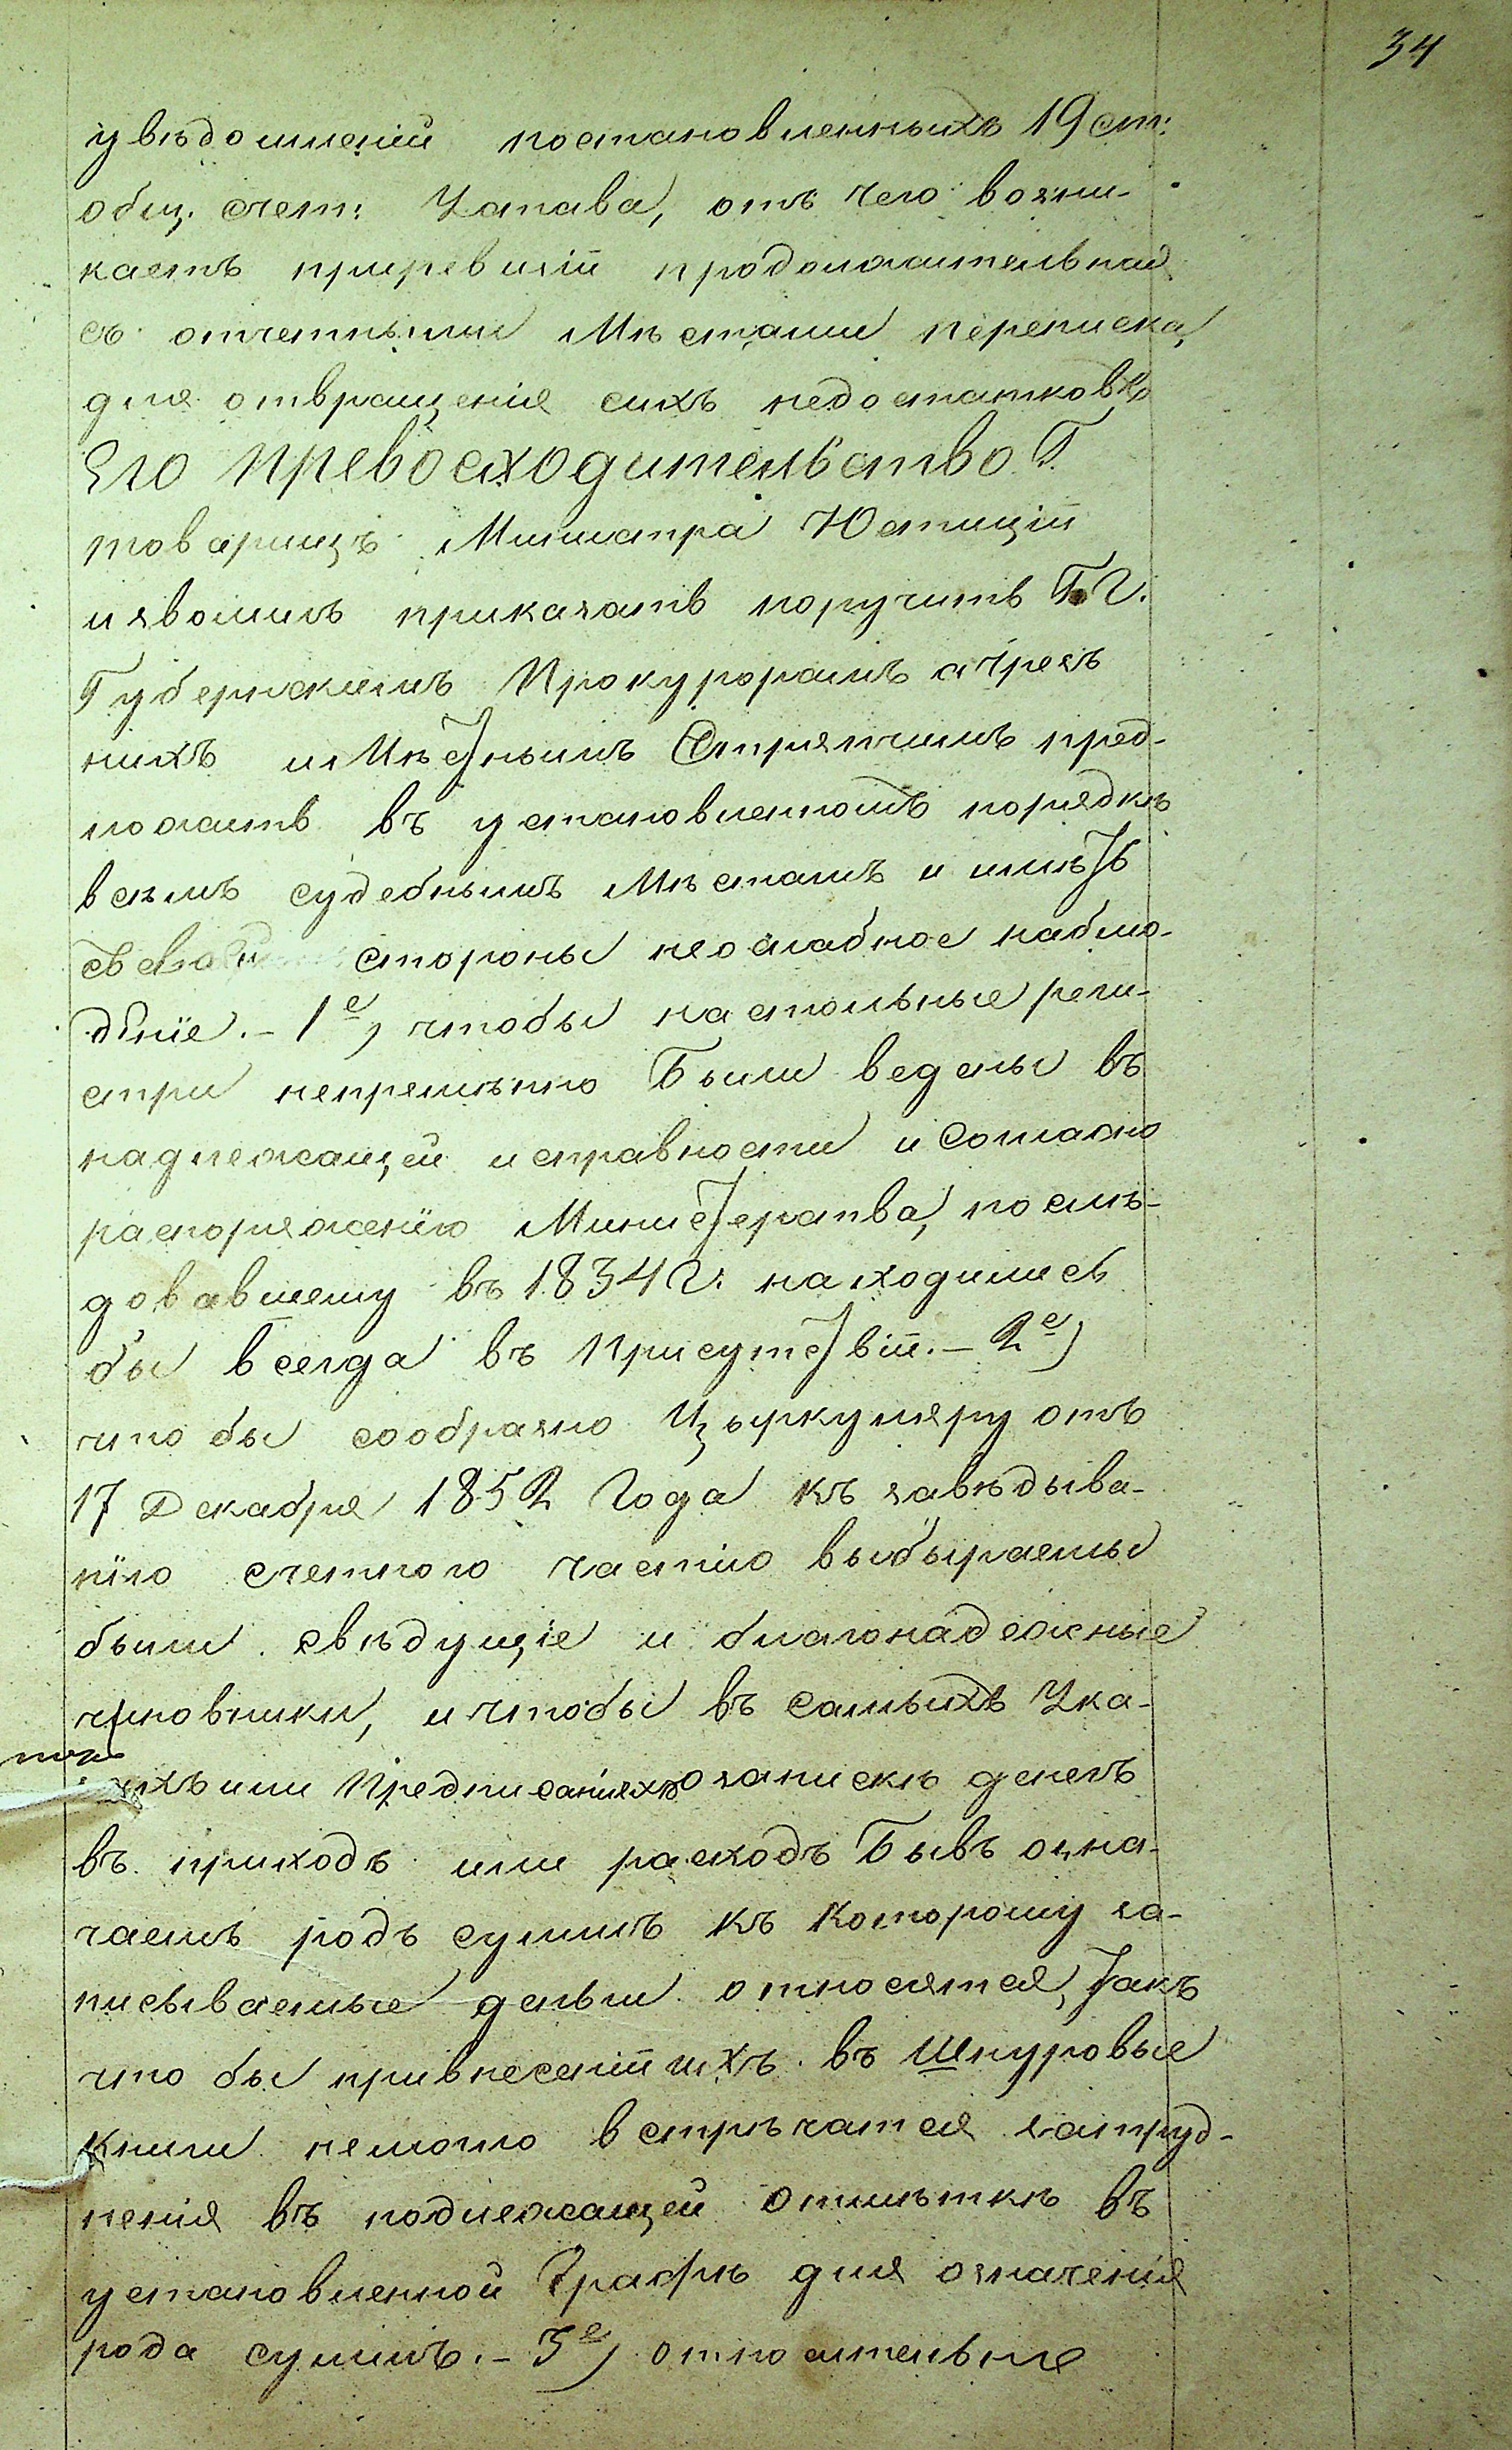 34
увѣдомленій постановленныхъ 19 ст:
общ. счет: Устава, отъ чего возни-
каетъ приревизіи продолжительная
съ отчетными Мѣстами переписка,
для отвращенія сихъ недостатковъ
Его Превосходительство Г.
товарищъ Министра Юстиціи
изволилъ приказать поручить Г.Г.
Губернскимъ Прокурорамъ ачрезъ
нихъ и Уѣзнымъ Стряпчимъ пред-
ложить въ установленномъ порядкѣ
всѣмъ судебнымъ Мѣстамъ и имѣть
съ своей стороны неослабное наблю-
деніе. - 1е, чтобы настольные реги-
стри непремѣнно Были ведены въ
надлежащей исправности и Согласно
распоряженію Министерства, послѣ-
довавшему въ 1834 г. находились
бы всегда въ Присутствіи. - 2е)
что бы сообразно Цыркуляру отъ
17 Декабря 1852 Года къ завѣдыва-
нію счетного частію выбыраемы
были свѣдущіе и благонадежные
чиновники, и чтобы въ самыхъ Ука-
захъ или Предписаніяхъ о запискѣ денегъ
въ приходъ или расходъ Бывъ озна-
чаемъ родъ суммъ къ Которому за-
писываемые деньги относятся, такъ
что бы привнесеніи ихъ въ Шнуровые
книги немогло встрѣчатся затруд-
ненія въ подлежащей отмѣткѣ въ
установленной Графѣ для означенія
рода суммъ. - 3е, относительне